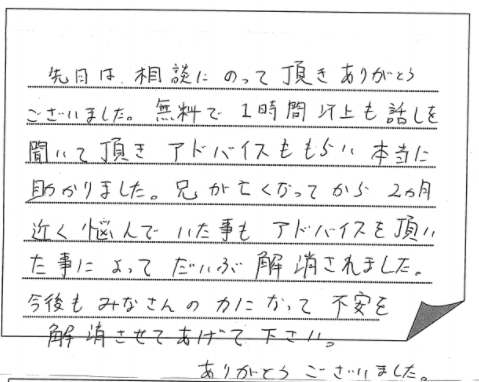 先日は、相談にのって頂きありがとう
ございました。無料で1時間以上も話しを
聞いて頂きアドバイスももらい本当に
助かりました。兄が亡くなってから2ヵ月
近く悩んでいた事もアドバイスを頂い
た事によってだいぶ解消されました。
今後もみなさんの力になって不安を
解消させてあげて下さい。
ありがとうございました。